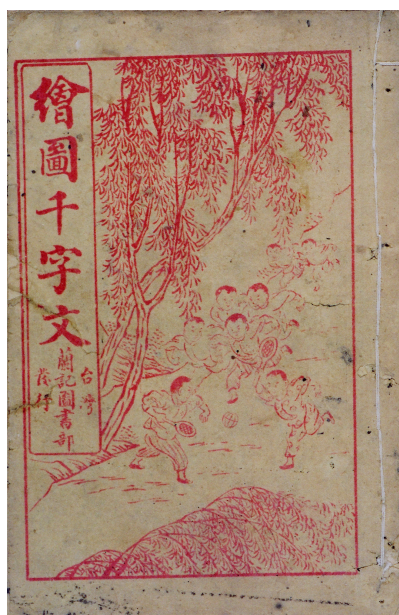 繪圖千字文
台灣
蘭記圖書部
發行